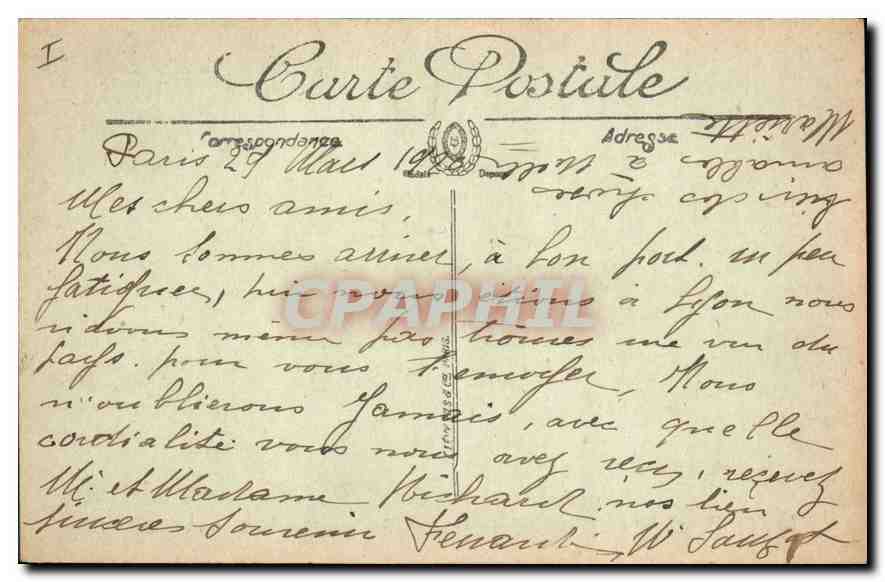 I
Carte Postale
Correspondance
Adresse
Paris 29 Mars
Mes chers amis,
Nous sommes arriver, à bon port. un peu
fatiguer, nous étions à Lyon nous
n'avons même pas trouver une vue du
pays. pour vous l'envoyer, Nous
n'oublierons Jamais, avec quelle
cordialité vous nous avez reçu, recevez
Mr et Madame Richard nos bien
sincères Souvenir
amables à
Mariette
CPAPHIL